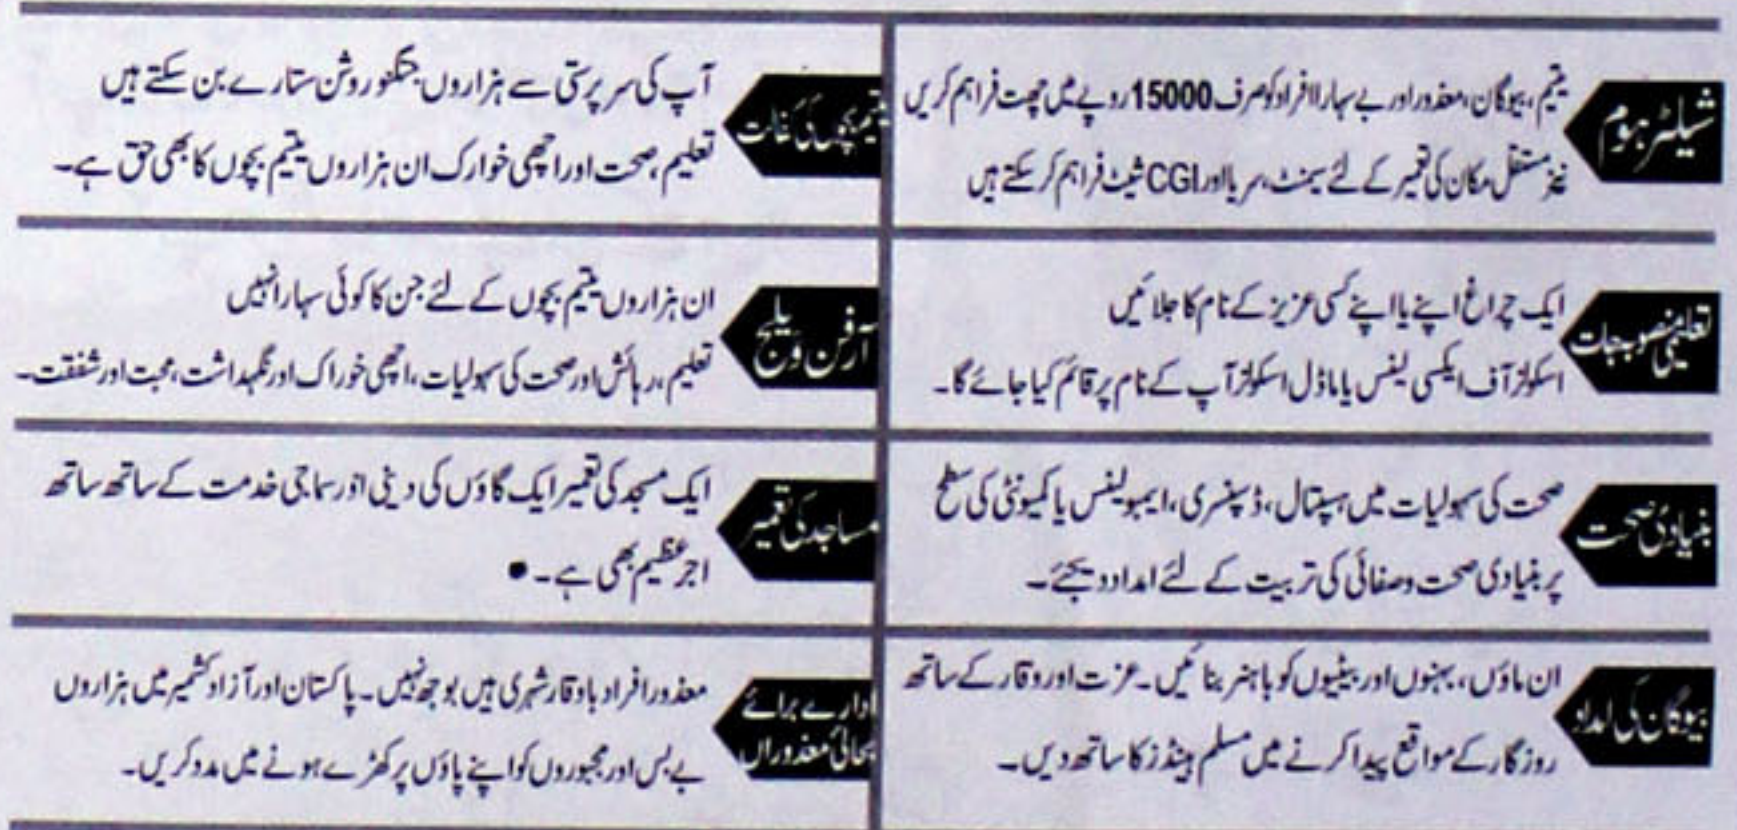 شیلٹر ہوم
یتیم، بیوگان، معذور اور بے سہارا افراد کو صرف 15000 روپے میں چھت فراہم کریں
نیز مستقل مکان کی تعمیر کے لئے سیمنٹ، سریا اور CGI شیٹ فراہم کر سکتے ہیں
تعلیمی منصوبہ جات
ایک چراغ اپنے یا اپنے کسی عزیز کے نام کا جلائیں
اسکولز آف ایکسی لینس یا ماڈل اسکولز آپ کے نام پر قائم کیا جائے گا۔
بنیادی صحت
صحت کی سہولیات میں ہسپتال، ڈسپنسری، ایمبولینس یا کمیونٹی کی سطح
پر بنیادی صحت و صفائی کی تربیت کے لئے امداد دیجئے۔
بیوگان کی امداد
ان ماؤں، بہنوں اور بیٹیوں کو باہنر بنائیں۔ عزت اور وقار کے ساتھ
روزگار کے مواقع پیدا کرنے میں مسلم ہینڈز کا ساتھ دیں۔
یتیم بچوں کی کفالت
آپ کی سرپرستی سے ہزاروں جگنو روشن ستارے بن سکتے ہیں
تعلیم، صحت اور اچھی خوارک ان ہزاروں یتیم بچوں کا بھی حق ہے۔
آرفن ویلج
ان ہزاروں یتیم بچوں کے لئے جن کا کوئی سہارا نہیں
تعلیم، رہائش اور صحت کی سہولیات، اچھی خوراک اور نگہداشت، محبت اور شفقت۔
مساجد کی تعمیر
ایک مسجد کی تعمیر ایک گاؤں کی دینی اور سماجی خدمت کے ساتھ ساتھ
اجر عظیم بھی ہے۔
ادارے برائے
بحالئ معذوراں
معذور افراد باوقار شہری ہیں بوجھ نہیں۔ پاکستان اور آزاد کشمیر میں ہزاروں
بے بس اور مجبوروں کو اپنے پاؤں پر کھڑے ہونے میں مدد کریں۔